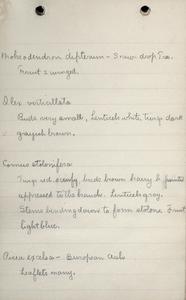 Mohodendron dipterum - Snow drop Tree.
Fruit 2 winged.
Ilex verticillata
Buds very small, lenticels white, twigs dark
grayish brown.
Cornus stolonifera
Twigs red, buds brown hairy & pointed
appressed to the branch. Lenticels gray.
Stems binding down to form stolons. Fruit
light blue.
Picea excelsa - European
Leaflets many.